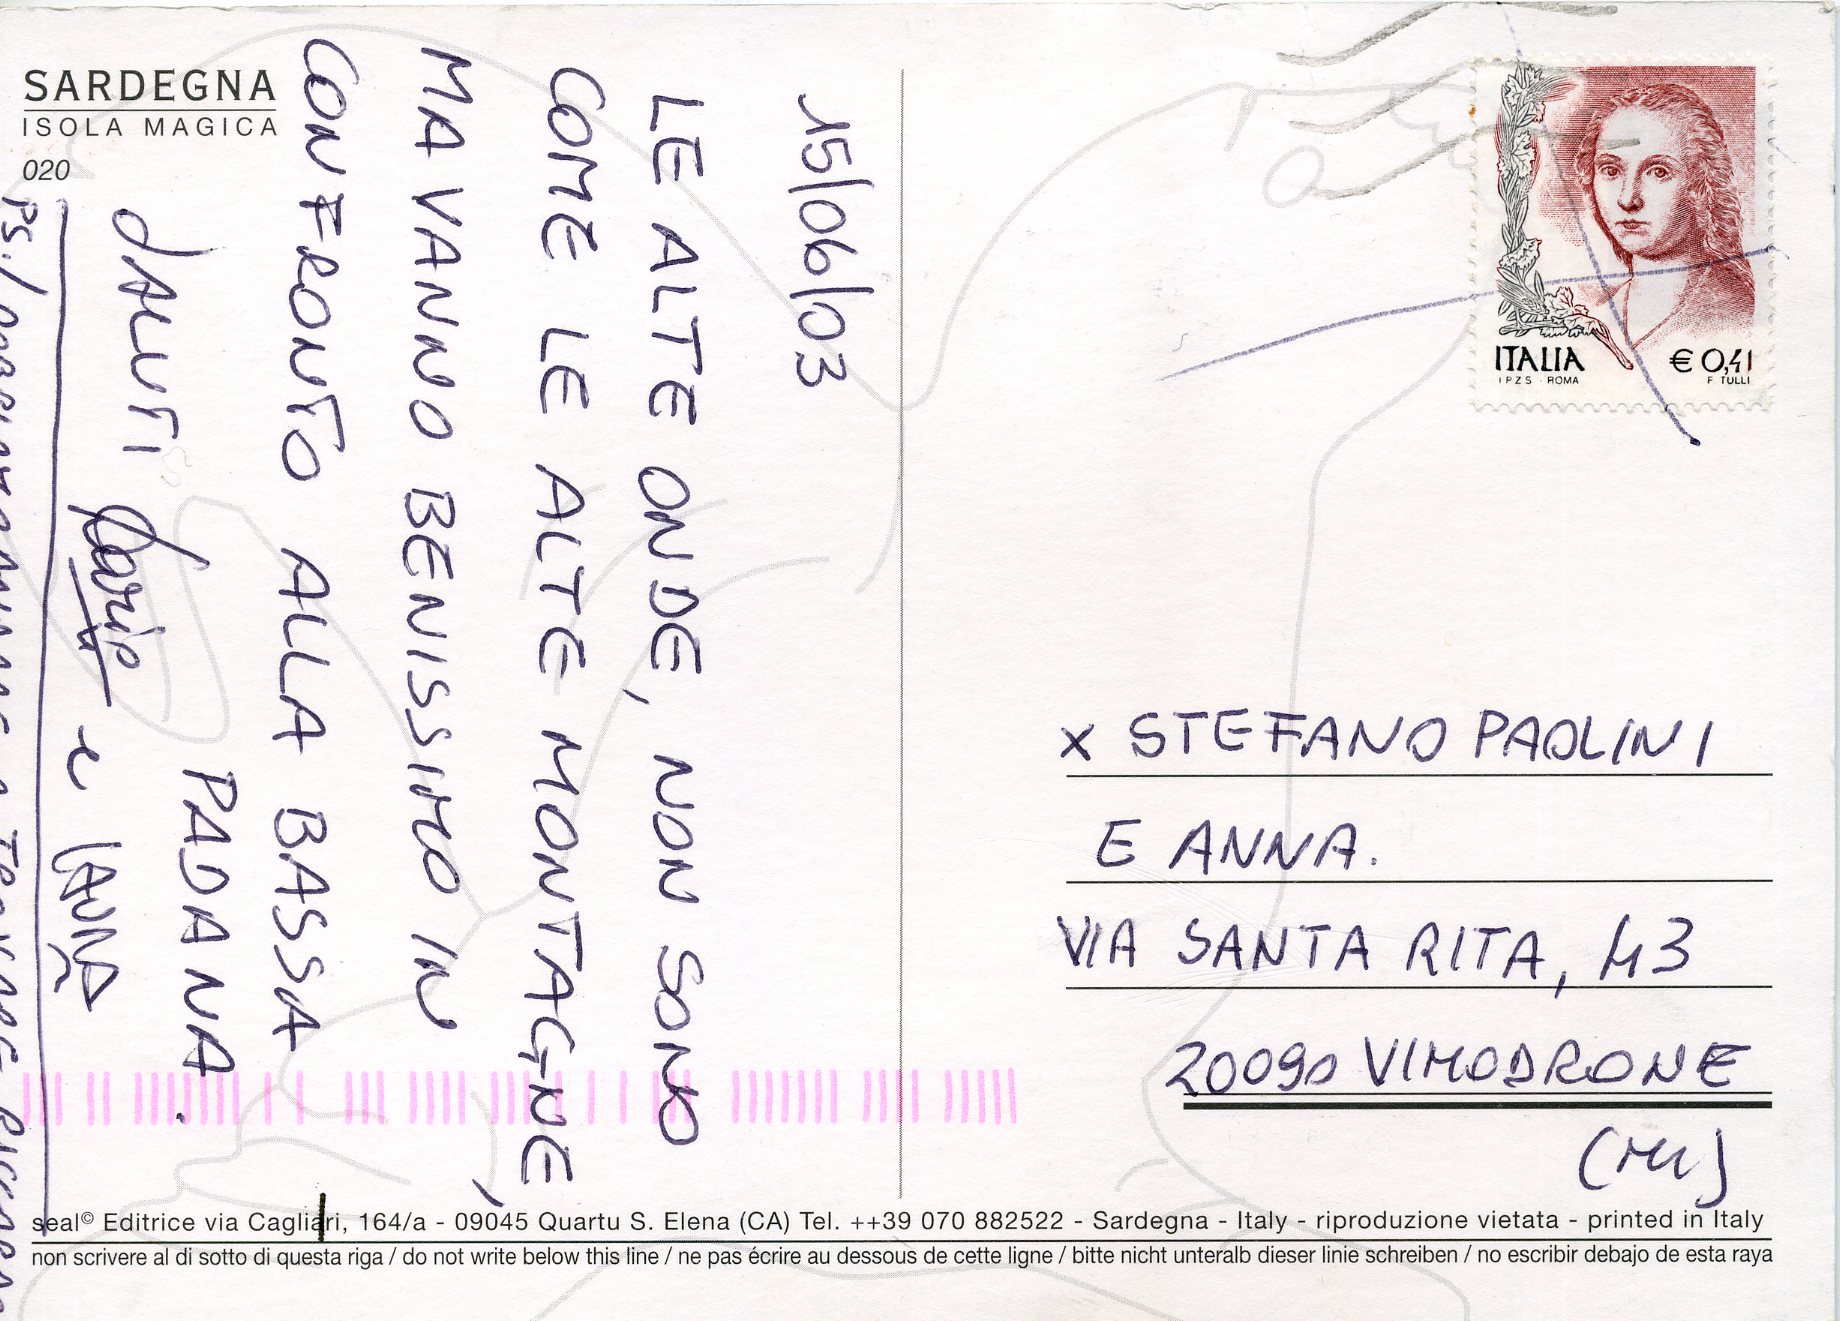 SARDEGNA
ISOLA MAGICA
020
15/06/03
LE ALTE ONDE, NON SONO
COME LE ALTE MONTAGNE,
MA VANNO BENISSIMO IN
CONFRONTO ALLA BASSA
PADANA.
SALUTI Dario e LAURA
PS.
ITALIA
€ 0,41
I.P.Z.S. - ROMA
F. TULLI
x STEFANO PAOLINI
E ANNA.
VIA SANTA RITA, 43
20090 VIMODRONE
(MI)
seal© Editrice via Cagliari, 164/a - 09045 Quartu S. Elena (CA) Tel. ++39 070 882522 - Sardegna - Italy - riproduzione vietata - printed in Italy
non scrivere al di sotto di questa riga / do not write below this line / ne pas écrire au dessous de cette ligne / bitte nicht unteralb dieser linie schreiben / no escribir debajo de esta raya